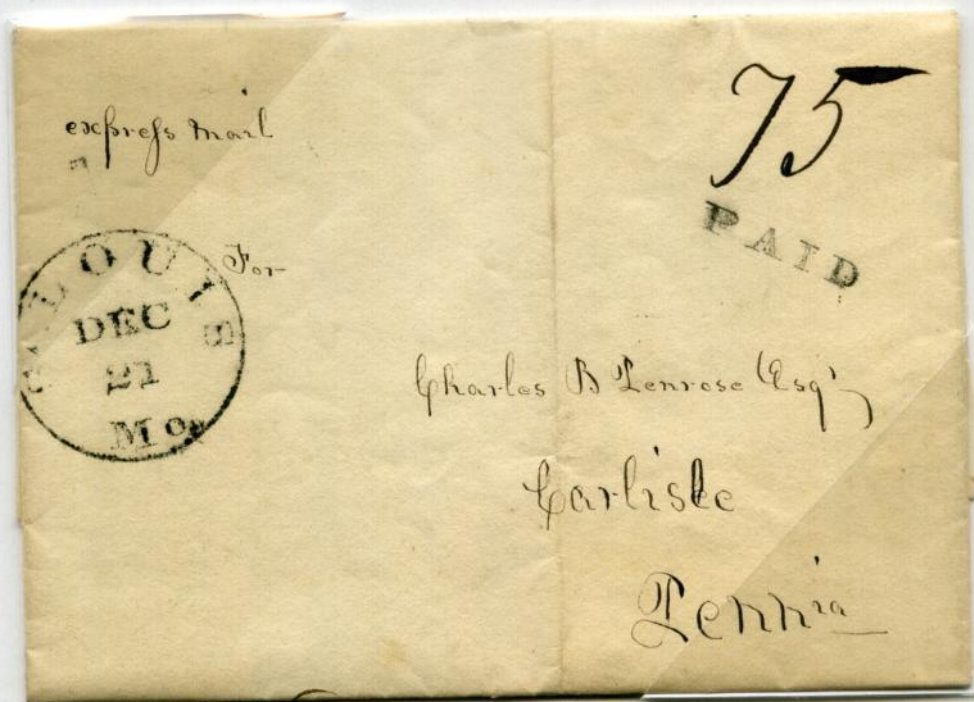 express mail
75
PAID
St LOUIS
DEC
21
Mo.
For
Charles B Penrose Esqr
Carlisle
Pennia